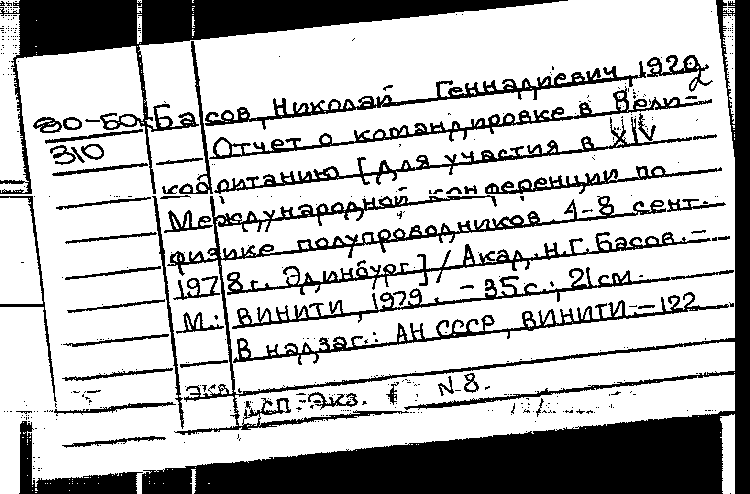 80-50к Басов, Николай Геннадиевич, 1922
310 Отчет о командировке в Вели-
кобританию [для участия в XIV
Международной конференции по
физике полупроводников 4-8 сент.
1978г. Эдинбург] / Акад. Н.Г. Басов. –
М.: ВИНИТИ, 1979. – 35с.; 21см.
В надзаг.: АН СССР, ВИНИТИ. – 122
экв.
ДСП. Экз. N 8.